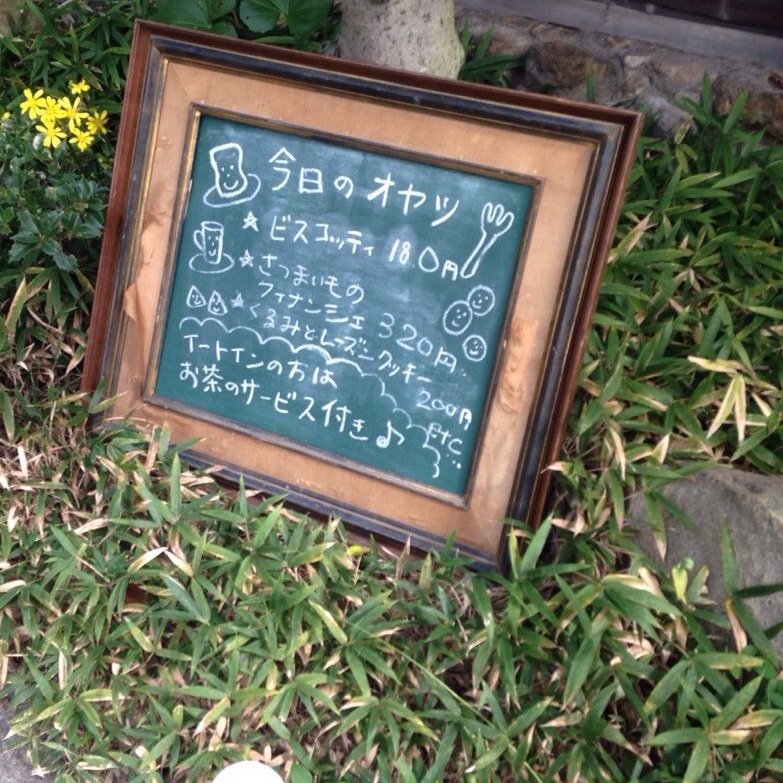 今日のオヤツ
★ビスコッティ 180円
★さつまいもの
フィナンシェ 320円
★くるみとレーズンクッキー
200円
イートインの方は
お茶のサービス付き♪
etc